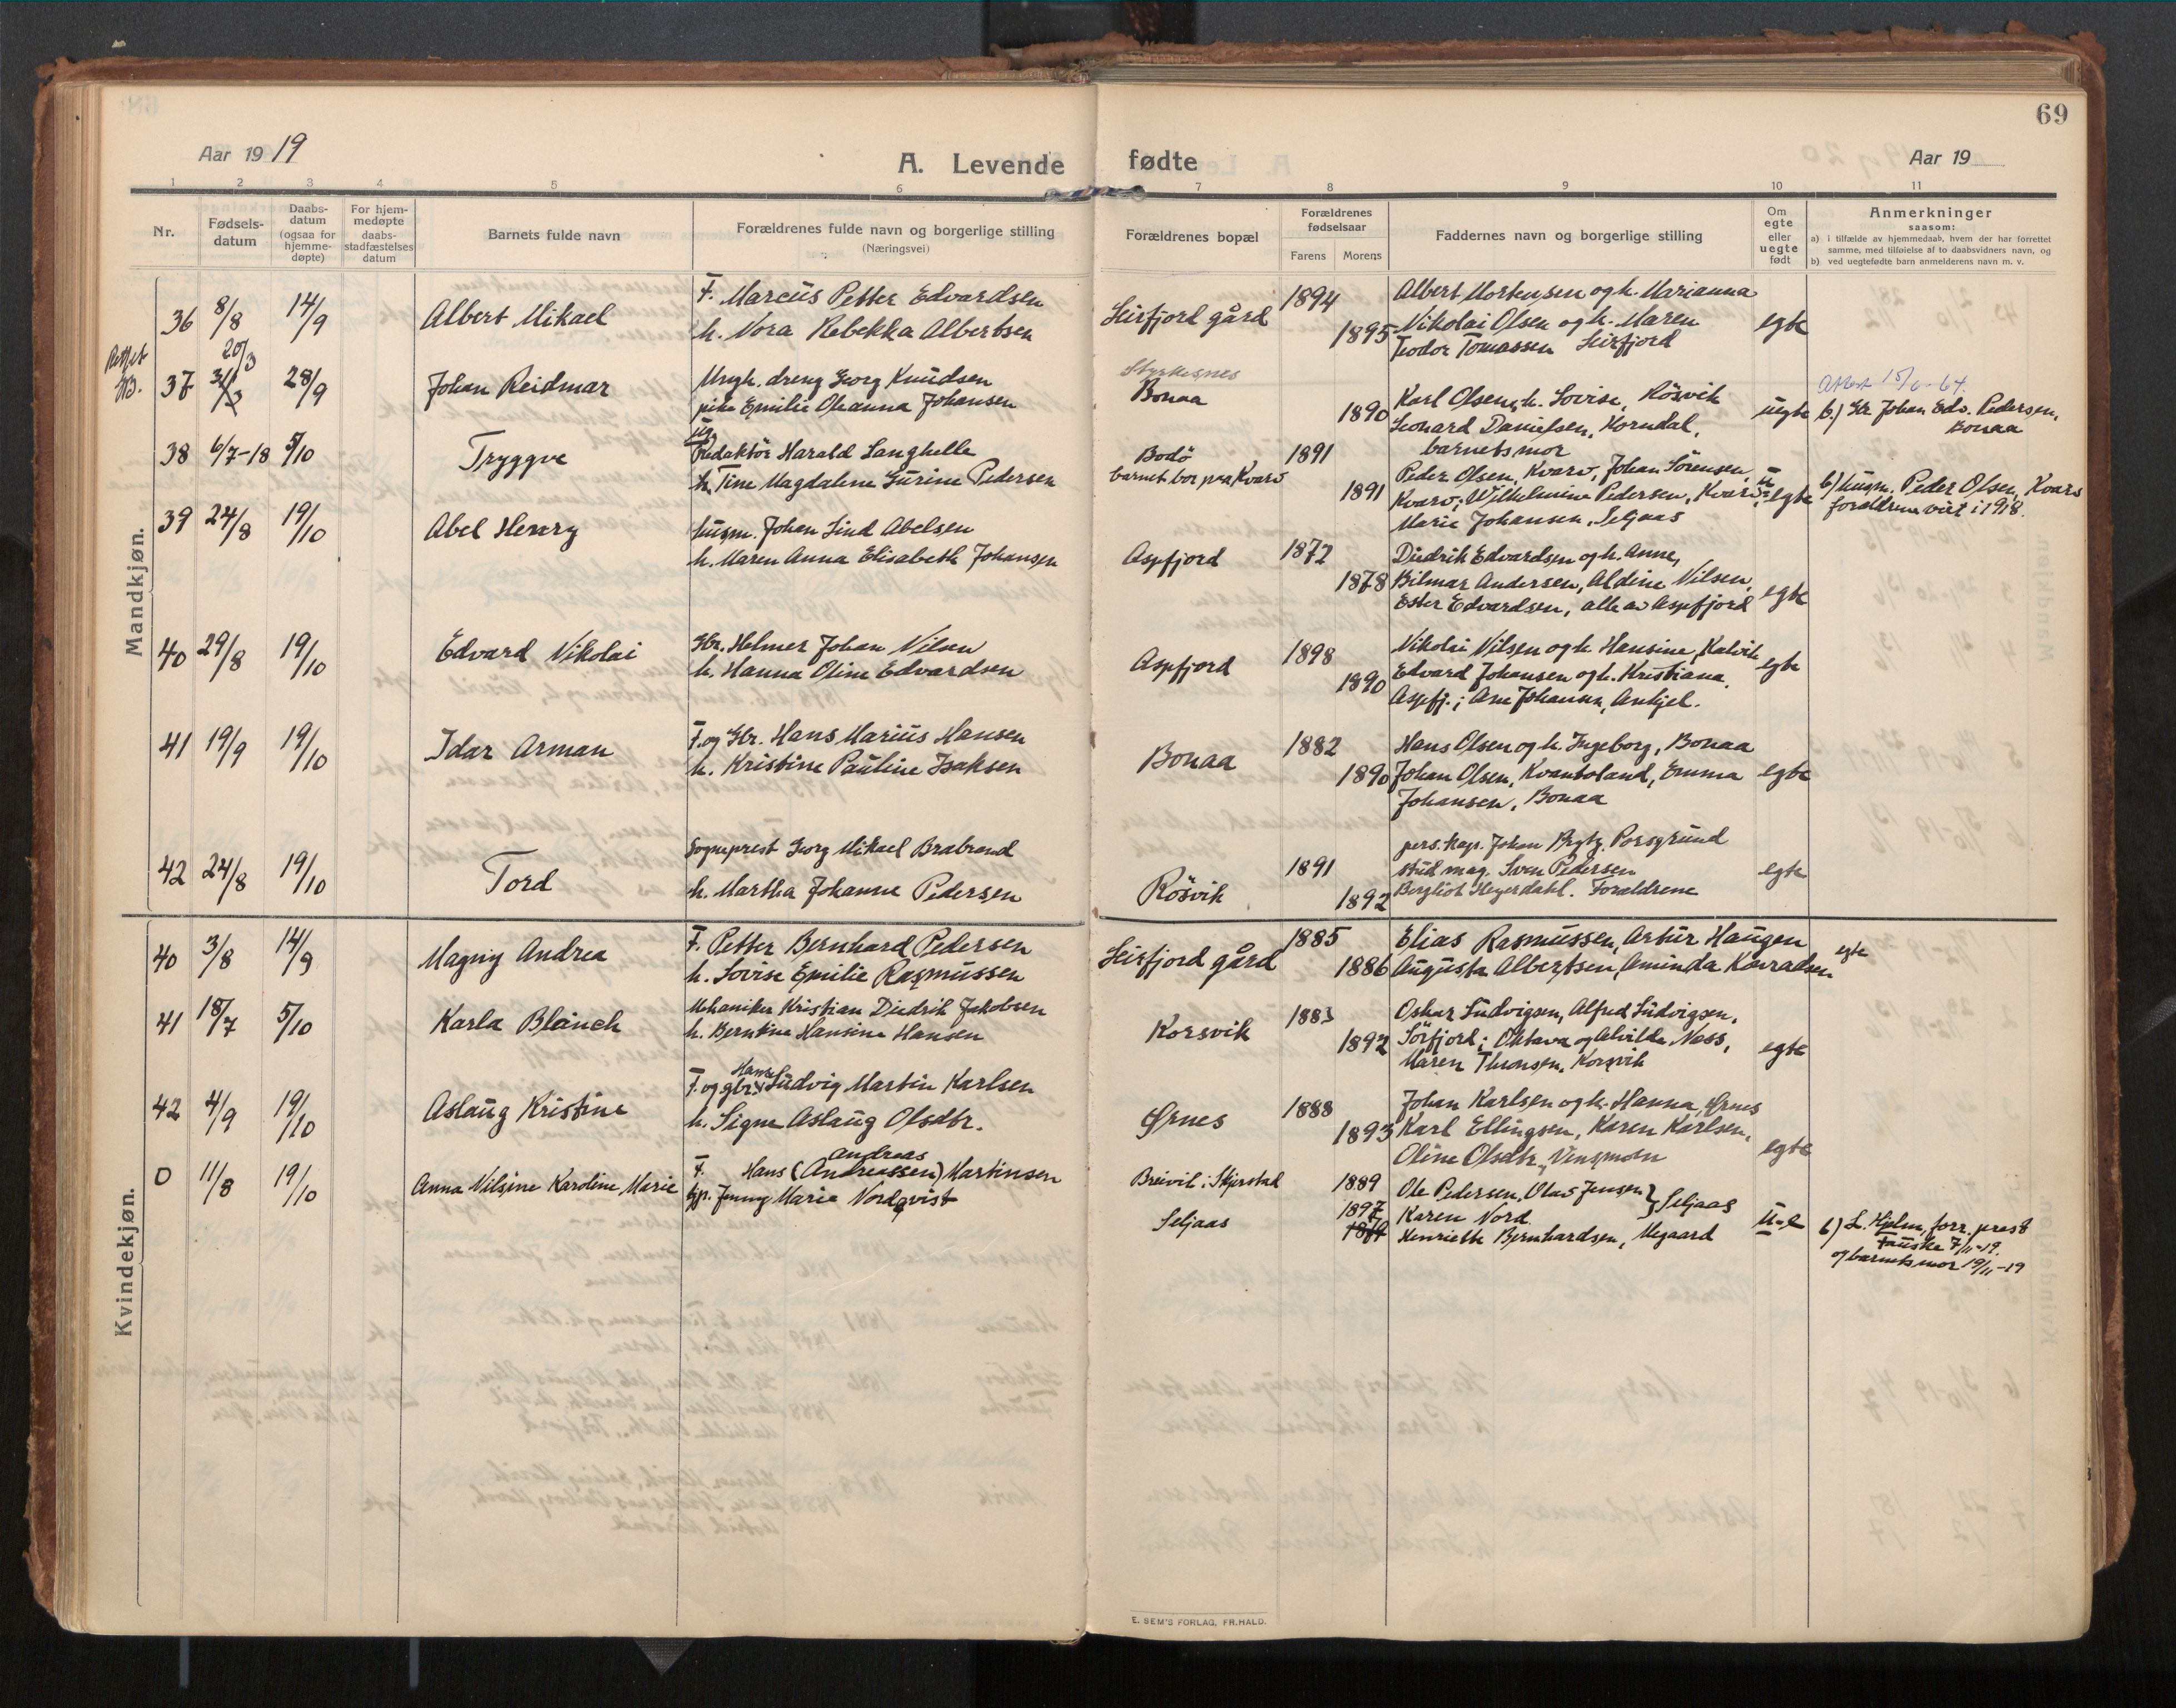 69
Aar 1919
A. Levende fødte
Aar 19
1 2 3 4 5 6 7 8 9 10 11
Nr.
Fødsels-
datum
Daabs-
datum
(ogsaa for
hjemme-
døpte)
For hjem-
medøpte
daabs-
stadfæstelses
datum
Barnets fulde navn
Forældrenes fulde navn og borgerlige stilling
(Næringsvei)
Forældrenes bopæl
Forældrenes
fødselsaar
Farens Morens
Faddernes navn og borgerlige stilling
Om
egte
eller
uegte
født
Anmerkninger
saasom:
a) i tilfælde av hjemmedaab, hvem der har forrettet
samme, med tilføielse af to daabsvidners navn, og
b) ved uegtefødte barn anmelderens navn m. v.
Mandkjøn.
36 8/8 14/9 Albert Mikael
F. Marcus Petter Edvardsen
h. Nora Rebekka Albertsen
Leirfjord gård 1894 1895
Albert Mortensen og h. Marianna
Nikolai Olsen og h. Maren
Teodor Tomassen Leirfjord
egte
Rettet
37 20/3 31/3 28/9 Johan Reidmar
Ungk. dreng Georg Knudsen
pike Emilie Oleanna Johansen
Styrkesnes
Bonaa 1890
Karl Olsen, h. Lovise, Rösvik
Leonard Danielsen, Korndal,
barnets mor
uegte
Attest 15/6-64.
b.) Gr Johan Edv. Pedersen,
Bonaa
38 6/7-18 5/10 Tryggve
ug.
Redaktör Harald Langhelle
h. Tine Magdalene Gurine Pedersen
Bodö 1891
barnet bor paa Kvarv 1891
Peder Olsen, Kvarv, Johan Sörensen,
Kvarv; Wilhelmine Pedersen, Kvarv;
Marie Johansen, Seljaas
u=egte
b) husm. Peder Olsen, Kvarv
forældrene viet i 1918.
39 24/8 19/10 Abel Henry
husm. Johan Lind Abelsen
h. Maren Anna Elisabeth Johansen
Aspfjord 1872 1878
Diedrik Edvardsen og h. Anne,
Hilmar Andersen, Aldine Nilsen,
Ester Edvardsen, alle av Aspfjord
egte
40 29/8 19/10 Edvard Nikolai
Gbr. Helmer Johan Nilsen
h. Hanna Oline Edvardsen
Aspfjord 1898 1890
Nikolai Nilsen og h. Hansine, Kalvik
Edvard Johansen og h. Kristiana,
Aspfj.; Ane Johansen, Ankjel.
egte
41 19/9 19/10 Idar Arman
F. og Gbr. Hans Marius Hansen
h. Kristine Pauline Isaksen
Bonaa 1882 1890
Hans Olsen og h. Ingeborg, Bonaa
Johan Olsen, Kvantoland, Emma
Johansen, Bonaa
egte
42 24/8 19/10 Tord
Sogneprest Georg Mikael Brabrand
h. Martha Johanne Pedersen
Rösvik 1891 1892
pers. kap. Johan Brytz, Porsgrund
stud mag. Sven Pedersen
Bergliot Heyerdahl. Forældrene
egte
Kvindekjøn.
40 3/8 14/9 Magny Andrea
F. Petter Bernhard Pedersen
h. Lovise Emilie Rasmussen
Leirfjord gård 1885 1886
Elias Rasmussen, Artur Haugen
Augusta Albertsen, Aminda Konradsen
egte
41 18/7 5/10 Karla Blanch
Mekaniker Kristian Diedrik Jakobsen
h. Berntine Hansine Hansen
Korsvik 1883 1892
Oskar Ludvigsen, Alfred Ludvigsen,
Sörfjord; Oktava og Alvilde Ness,
Maren Thomsen, Korsvik
egte
42 4/9 19/10 Aslaug Kristine
F. og gbr. Hans Ludvig Martin Karlsen
h. Signe Aslaug Olsdtr.
Ørnes 1888 1893
Johan Karlsen og h. Hanna, Ørnes
Karl Ellingsen, Karen Karlsen,
Oline Olsdtr., Vensmoen
egte
0 11/8 19/10 Anna Nilsine Karoline Marie
Andreas
F. Hans (Andreassen) Martinsen
tjp. Jenny Marie Nordqvist
Breivik i Skjerstad 1889
Seljaas 1897
Ole Pedersen, Olav Jensen } Seljaas
Karen Nord.
Henriette Bernhardsen, Megaard
u-e
b) L. Hjelm, forr. prest
Fauske 7/11-19.
og barnets mor 19/11-19
E. SEM'S FORLAG, FR.HALD.